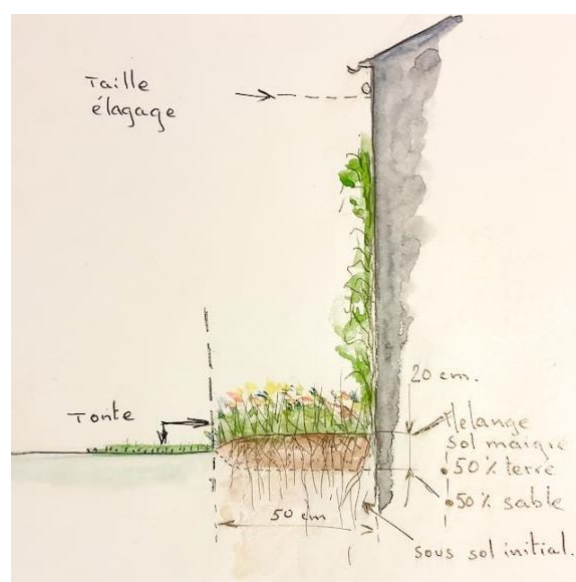 Taille
élagage
Tonte
20 cm.
Mélange
sol maigre
• 50% terre
• 50% sable
50 cm
sous sol initial.